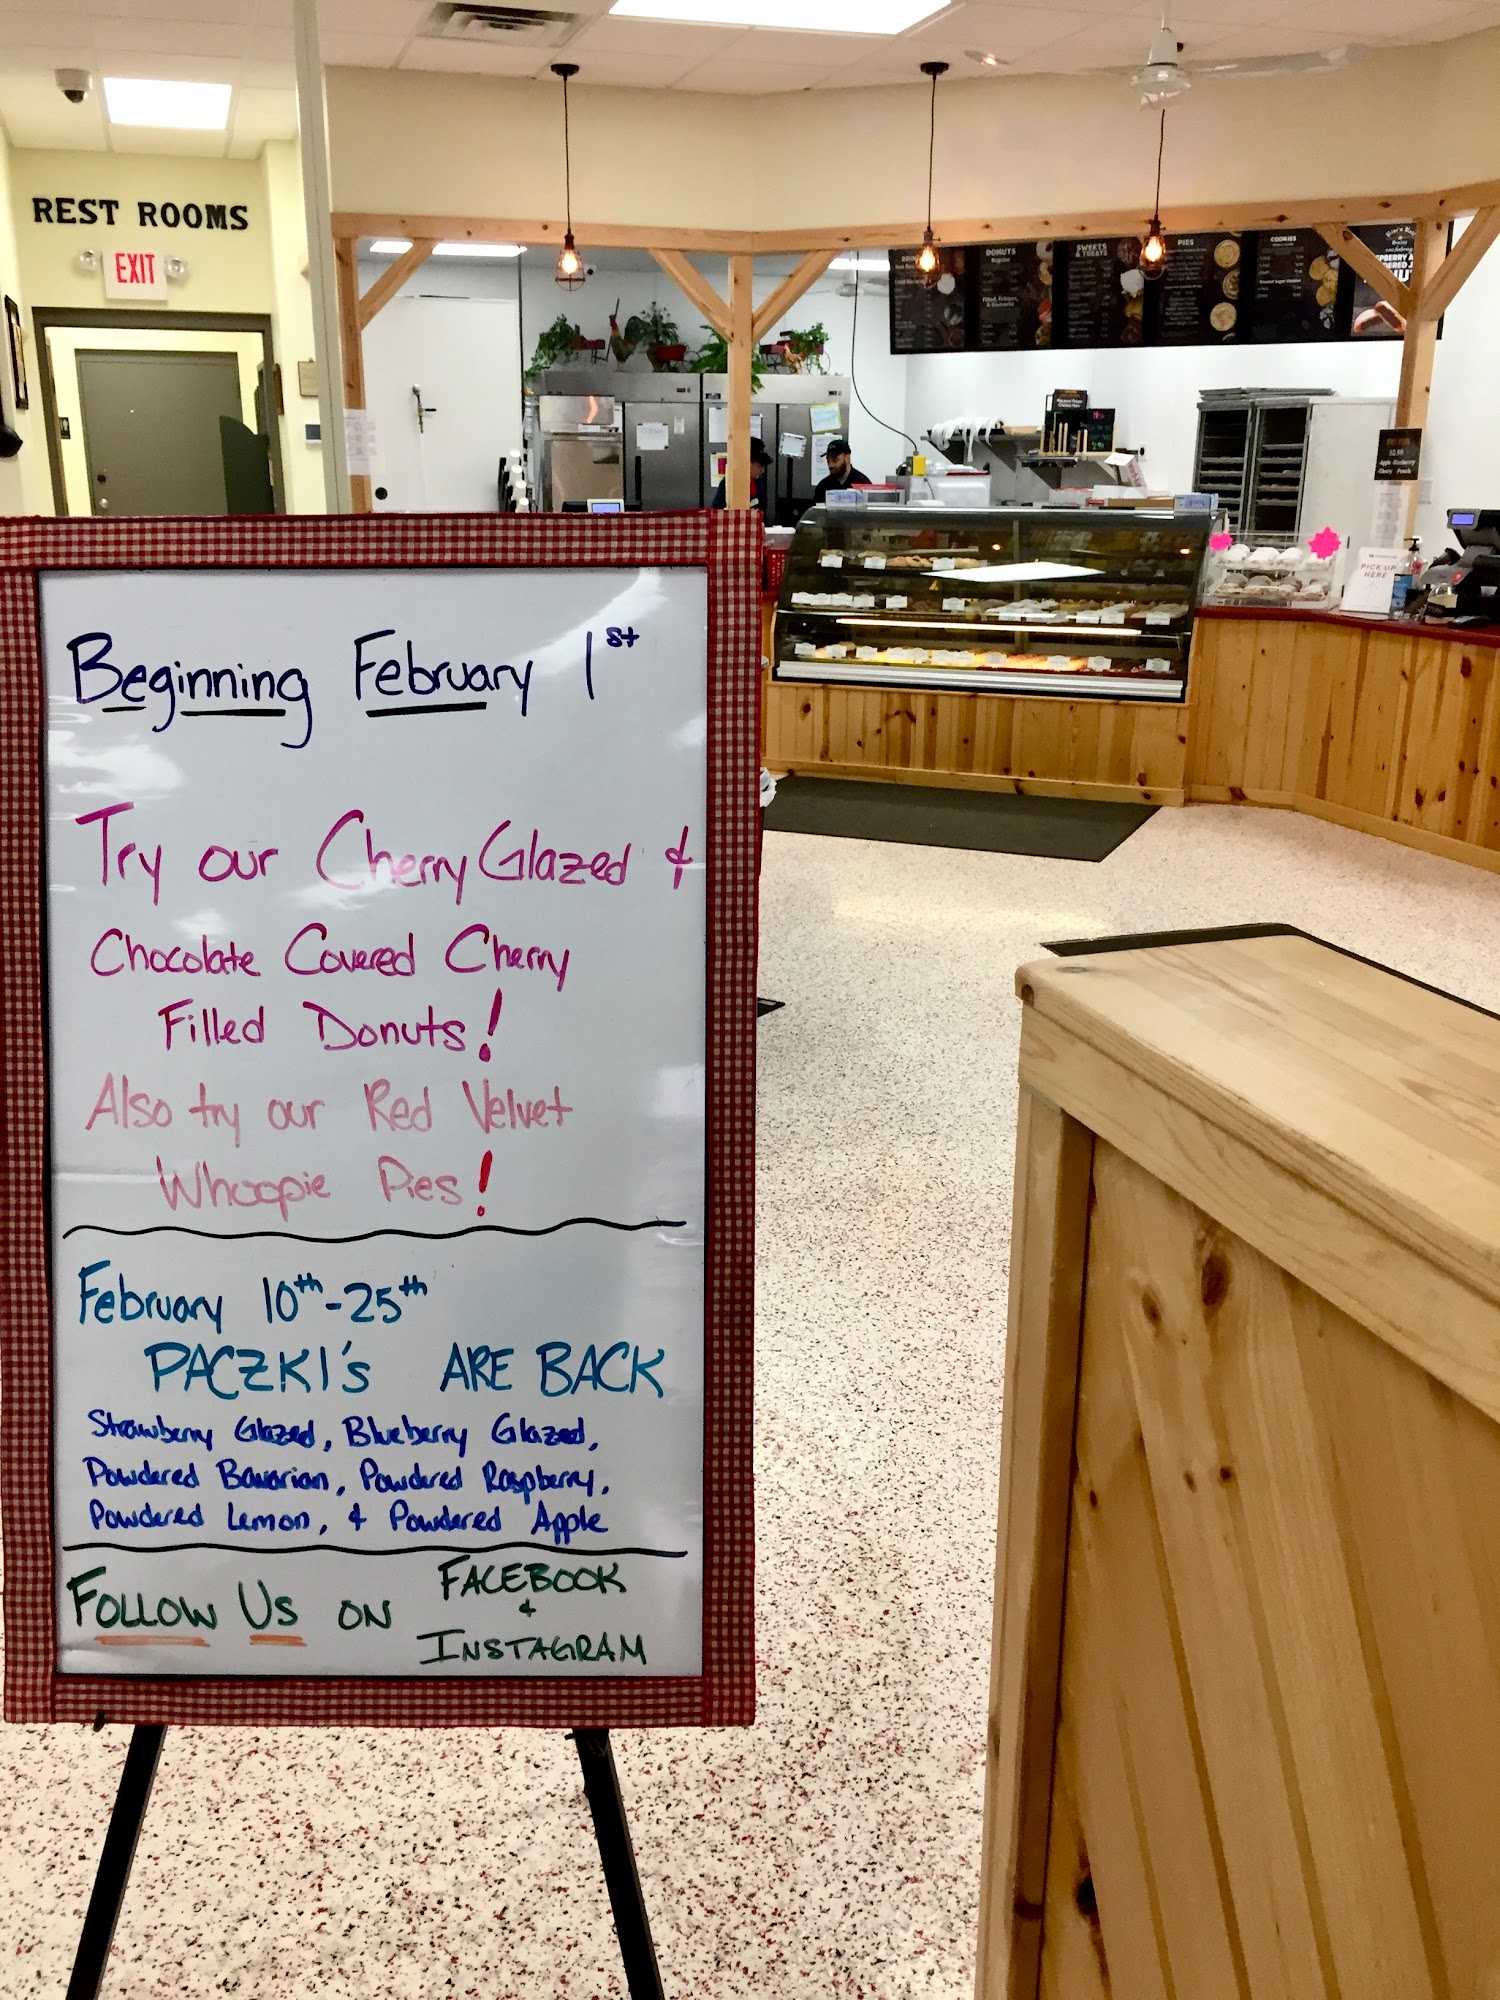 REST ROOMS
EXIT
DONUTS
SWEETS
& TREATS
PIES
COOKIES
PICK UP
HERE
Beginning February 1st
Try our Cherry Glazed &
Chocolate Covered Cherry
Filled Donuts!
Also try our Red Velvet
Whoopie Pies!
February 10th-25th
PACZKI's ARE BACK
Strawberry Glazed, Blueberry Glazed,
Powdered Bavarian, Powdered Raspberry,
Powdered Lemon, & Powdered Apple
FOLLOW US ON FACEBOOK
&
INSTAGRAM